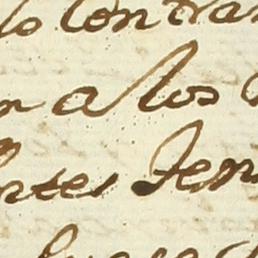 lo contra
n a los
ntes Jen